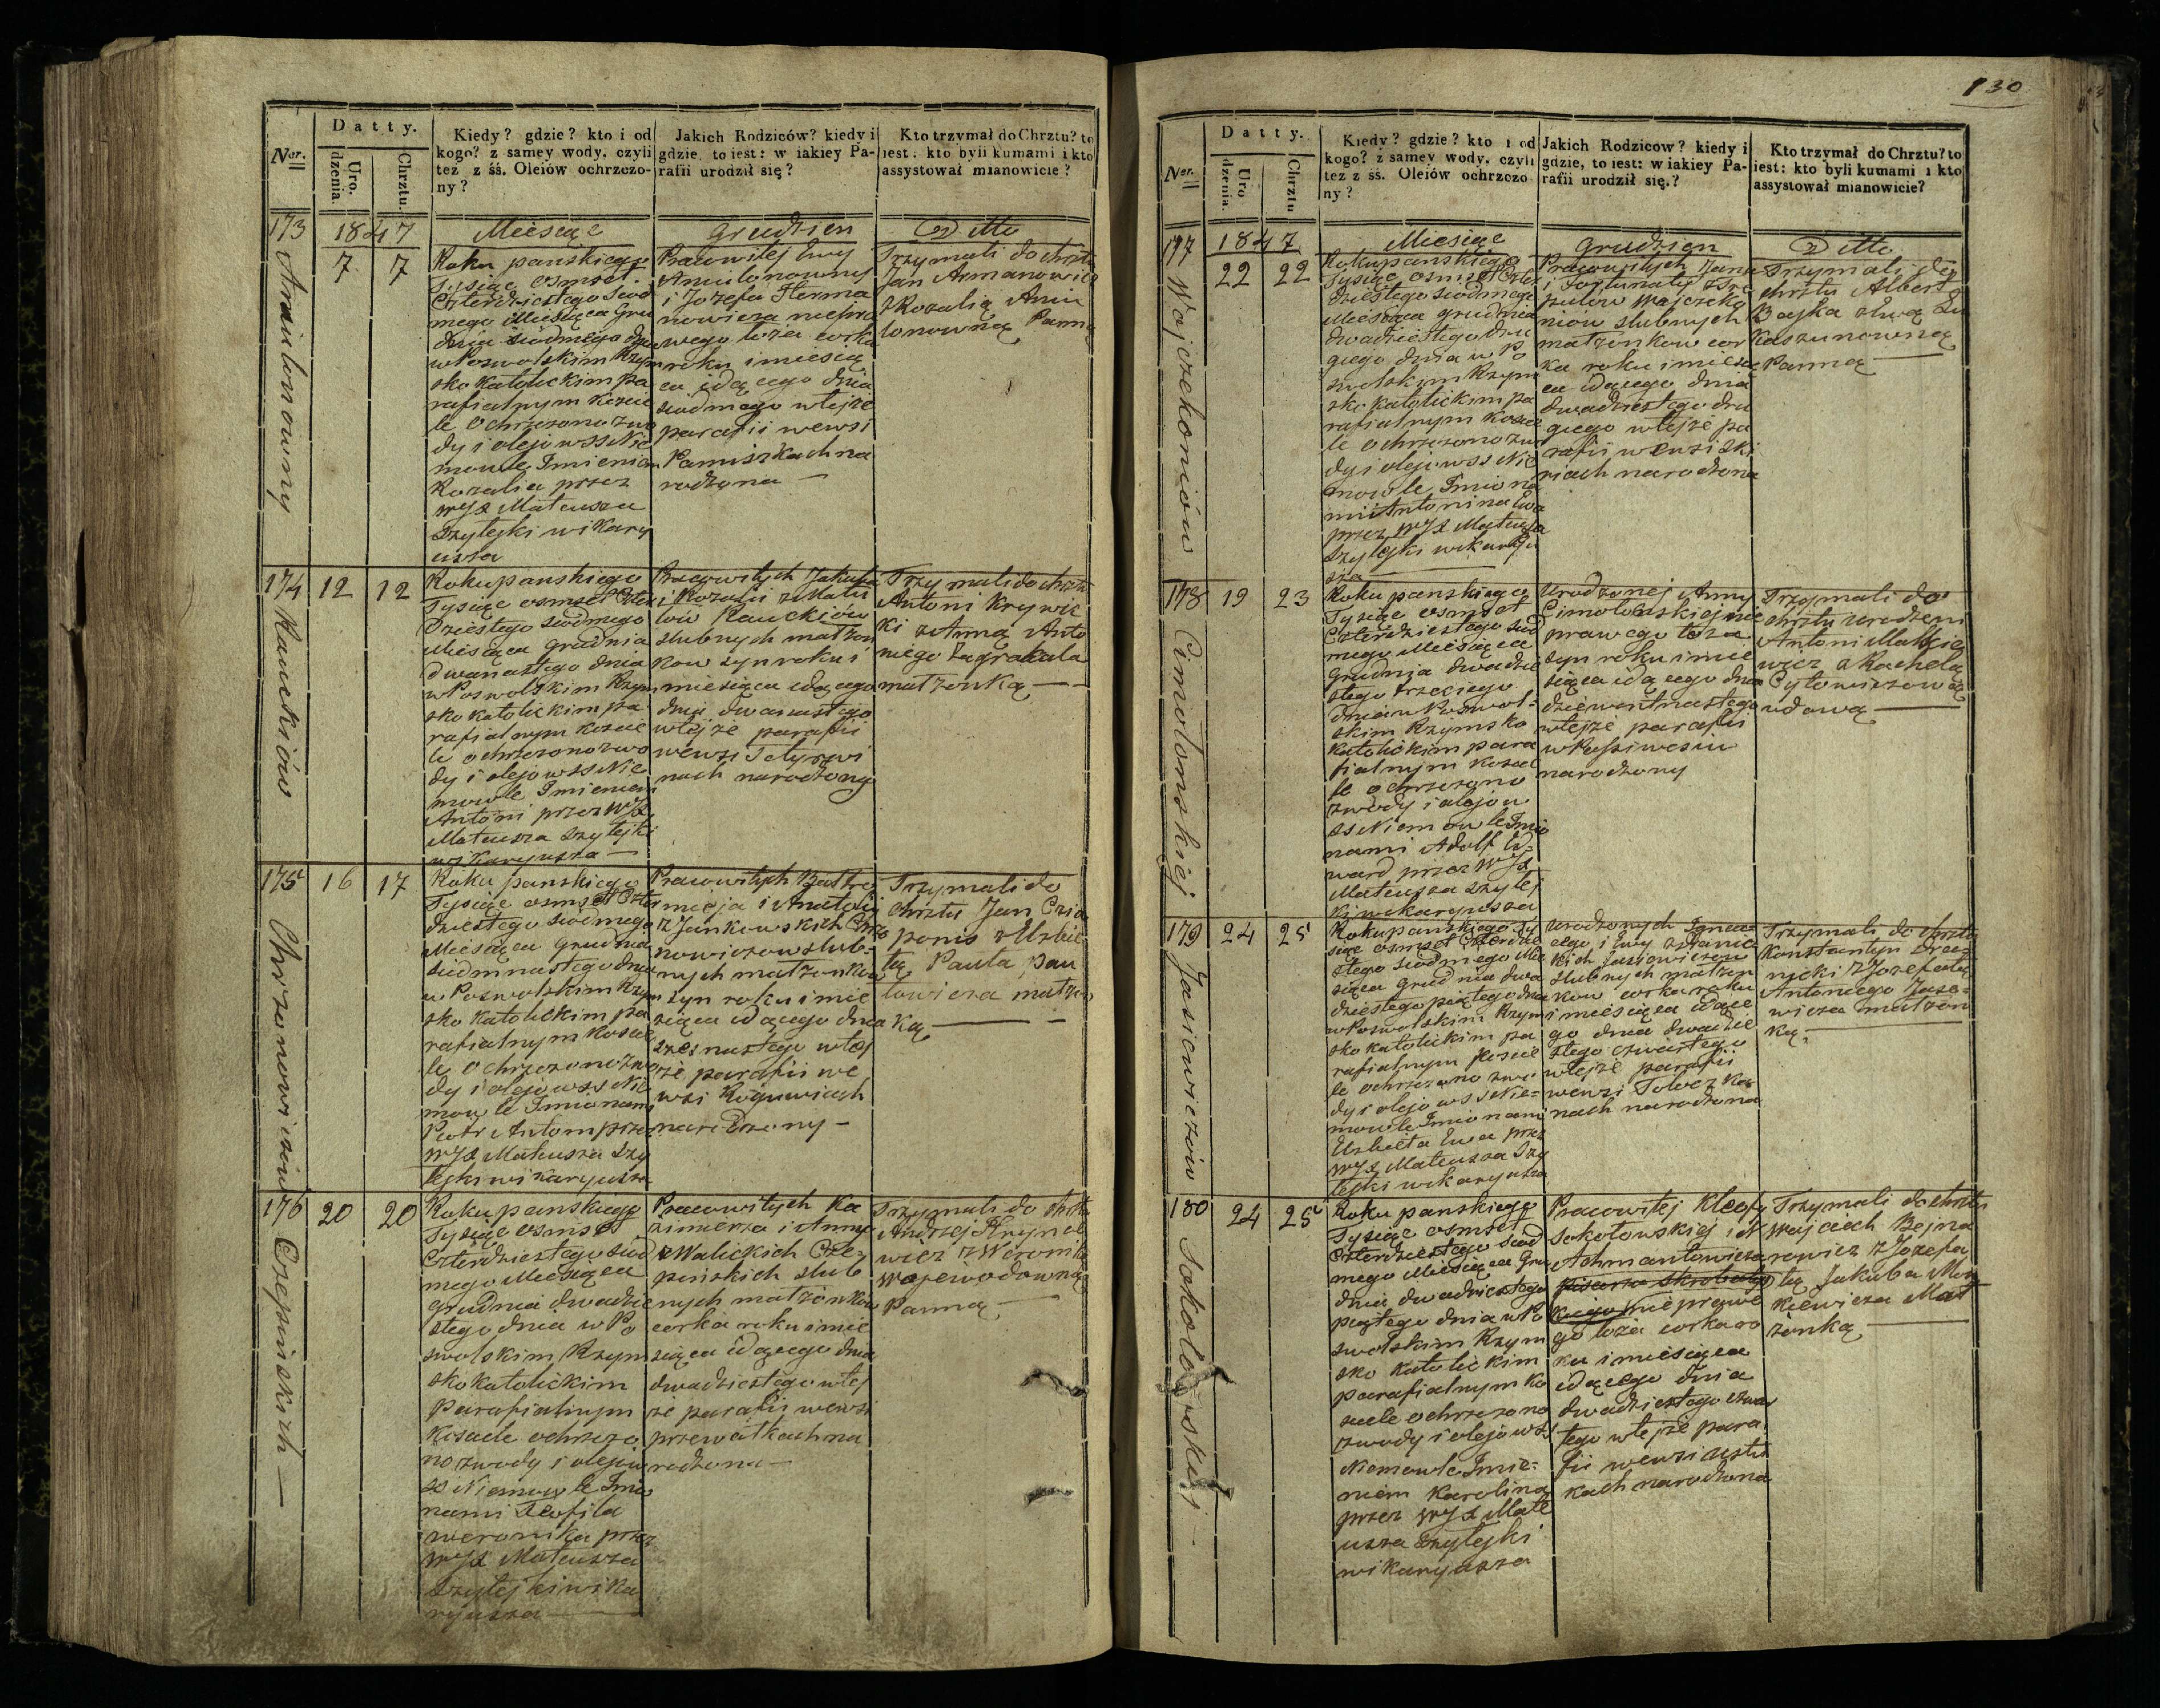 Datty.
Ner.
Uro.
dzenia.
Chrztu.
Kiedy? gdzie? kto i od
kogo? z samey wody, czyli
tez z śś. Oleiów ochrzczo-
ny?
Jakich Rodziców? kiedy i
gdzie, to iest: w iakiey Pa-
rafii urodził się?
Kto trzymał do Chrztu? to
iest: kto byli kumami i kto
assystował mianowicie?
173
1847
7 7
Miesiąc
Grudzien
Ditto
Roku panskiego
Tysiąc osmset
Czterdziestego siod
mego Miesiąca Gru
dnia siodmego dnia
w Poswolskim Rzym
sko katolickim pa
rafialnym koscie
le Ochrzczono z wo
dy i olejow SS Nie
mowle Imieniem
Rozalia przez
WJX Mateusza
Szylejki wikary
usza
Pracowitej Ewy
i Jozefa Herma
nowicza niepra
wego łoża corka
roku i miesią
ca idącego dnia
siodmego w tejże
parafii we wsi
Pamiszkach na
rodzona —
Trzymali do chrztu
Jan Armanowicz
z Rozalią Aniu
lonowną Panną
174
12 12
Rauckiów
Roku panskiego
Tysiąc osmset Czter
dziestego siodmego
Miesiąca Grudnia
dwunastego dnia
w Poswolskim Rzym
sko katolickim pa
rafialnym koscie
le ochrzczono z wo
dy i olejow SS Nie
mowle Imieniem
Antoni przez WJX
Mateusza Szylejki
wikaryusza —
Pracowitych Jakuba
i Rozalii z Matu
lów Rauckiów
slubnych małżon
kow syn roku i
miesiąca idącego
dnia dwunastego
w tejże parafii
we wsi Tetyrwi
nach narodzony
Trzymali do chrztu
Antoni Krywic
ki z Anną Anto
niego Zagrakala
małżonką —
175
16 17
Chrzanowiczów
Roku panskiego
Tysiąc osmset Czter
dziestego siodmego
Miesiąca Grudnia
siedmnastego dnia
w Poswolskim Rzym
sko katolickim pa
rafialnym koscie
le Ochrzczono z wo
dy i olejow SS Nie
mowle Imionami
Piotr Antoni przez
WJX Mateusza Szy
lejki wikaryusza
Pracowitych Bałtro
mieja i Anatolij
z Jankowskich Chrza
nowiczow slub-
nych małżonkow
syn roku i mie
siąca idącego dnia
szesnastego w tej
że parafii we
wsi Roguwiach
narodzony —
Trzymali do
chrztu Jan Czia
ponis z Elzbie
tą Paula Pau
lowicza małżon
ką —
176
20 20
Czepinskich —
Roku panskiego
Tysiąc osmset
Czterdziestego siod
mego Miesiąca
Grudnia dwadzie
stego dnia w Po
swolskim Rzym
sko katolickim
Parafialnym
Kosciele ochrzczo
no z wody i olejow
SS Niemowle Imio
nami Teofila
Weronika przez
WJX Mateusza
Szylejki wika
ryusza —
Pracowitych Ka
zimierza i Anny
z Walickich Cze-
pinskich slub
nych małżonkow
corka roku i mie
siąca idącego dnia
dwudziestego w tej
że parafii we wsi
przewałkach na
rodzona —
Trzymali do chrztu
Andrzej Hrynce
wicz z Weroniką
Wojewodowną
Panną —
130
Datty.
Ner.
Uro
dzenia.
Chrztu
Kiedy? gdzie? kto i od
kogo? z samey wody, czyli
tez z śś. Oleiów ochrzczo
ny?
Jakich Rodziców? kiedy i
gdzie, to iest: w iakiey Pa-
rafii urodził się.?
Kto trzymał do Chrztu? to
iest: kto byli kumami i kto
assystował mianowicie?
177
1847
22 22
Miesiąc
Grudzien
Ditto
Wajczekoniów
Roku panskiego
Tysiąc osmset Czter
dziestego siodmego
Miesiąca Grudnia
dwadziestego dru
giego dnia w Po
swolskim Rzym
sko katolickim pa
rafialnym koscie
le ochrzczono z wo
dy i olejow SS Nie
mowle Imiona
mi Antonina Ewa
przez WJX Mateusza
Szylejki wikaryu
sza —
Pracowitych Jana
i Fortunaty z Szre
putow Wajczeko
niów slubnych
małżonkow cor
ka roku i miesią
ca idącego dnia
dwudziestego dru
giego w tejże pa
rafii we wsi Ski
riach narodzona
Trzymali do
chrztu Albert
Bojka z Ewą Lu
kaszunowną
Panną —
178
19 23
Cimolonskiej
Roku panskiego
Tysiąc osmset
Czterdziestego siod
mego Miesiąca
Grudnia dwadzie
stego trzeciego
dnia w Poswol-
skim Rzymsko
katolickim para
fialnym koscie
le ochrzczono
z wody i olejow
SS Niemowle Imio
nami Adolf Ed
ward przez WJX
Mateusza Szylej
ki wikaryusza
Urodzonej Anny
Cimolonskiej nie
prawego łoża
syn roku i mie
siąca idącego dnia
dziewiętnastego
w tejże parafii
narodzony
Trzymali do
chrztu Urodzeni
Antoni Mackie
wicz z Rachelą
Cytowiczową
wdową —
179
24 25
Jasiewiczów
Roku panskiego Ty
siąc osmset Czterdzie
stego siodmego Mie
siąca Grudnia dwa
dziestego piątego dnia
w Poswolskim Rzym
sko katolickim pa
rafialnym koscie
le ochrzczono z wo
dy i olejow SS Nie-
mowle Imionami
Elzbieta Ewa przez
WJX Mateusza Szy
lejki wikaryusza
Urodzonych Ignac
ego i Ewy z
kich Jasiewiczow
slubnych małżon
kow corka roku
i miesiąca idące
go dnia dwadzie
stego czwartego
w tejże parafii
we wsi Toloczka
nach narodzona
Trzymali do chrztu
Konstantyn
nicki z Jozefatą
Antoniego Jase-
wicza małżon
ką —
180
24 25
Sokolowskiej —
Roku panskiego
Tysiąc osmset
Czterdziestego siod
mego Miesiąca Gru
dnia dwadziestego
piątego dnia w Po
swolskim Rzym
sko katolickim
parafialnym ko
sciele ochrzczono
z wody i olejow SS
Niemowle Imie-
niem Karolina
przez WJX Mate
usza Szylejki
wikaryusza
Pracowitej Kleofy
Sokołowskiej i
Achmantowicza
nieprawe
go łoża corka ro
ku i miesiąca
idącego dnia
dwadziestego czwar
tego w tejże para
fii we wsi
kach narodzona
Trzymali do chrztu
Wojciech Bejna
rowicz z Jozefa
tą Jakuba Moc
kiewicza Mał
żonką —